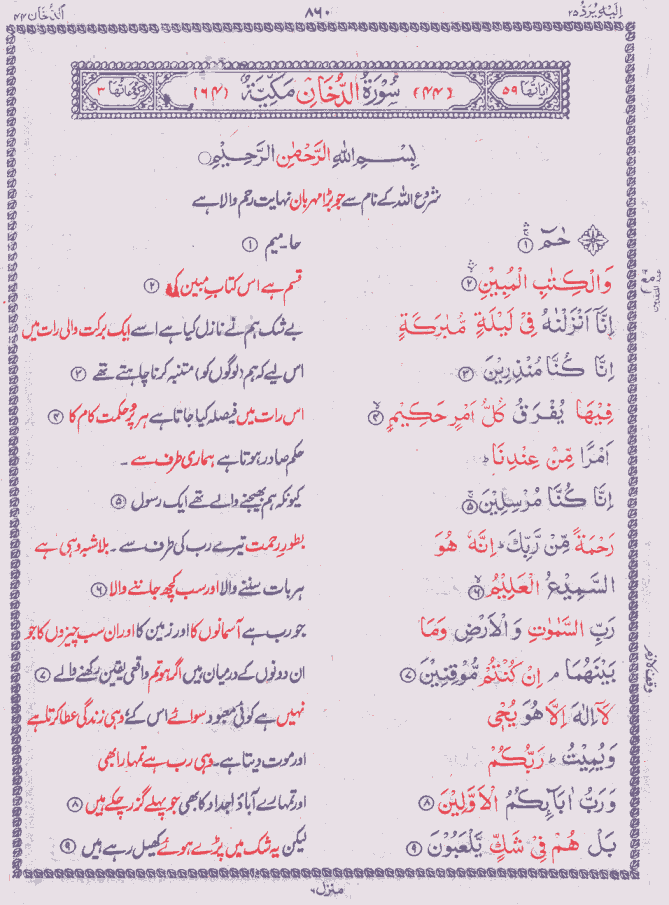 اِلَیْهِ یُرَدُّ ۲۵
۸۶۰
اَلدُّخَان ۴۴
اٰیَاتُهَا ۵۹
(۴۴) سُوْرَةُ الدُّخَانِ مَکِّیَّةٌ (۶۴)
رُکُوْعَاتُهَا ۳
بِسْمِ اللّٰهِ الرَّحْمٰنِ الرَّحِیْمِ
شروع اللہ کے نام سے جو بڑا مہربان نہایت رحم والا ہے
حٰمٓ ۱
حا۔میم ۱
وَالْکِتٰبِ الْمُبِیْنِ ۲
قسم ہے اس کتابِ مبین کی ۲
اِنَّاۤ اَنْزَلْنٰهُ فِیْ لَیْلَةٍ مُّبٰرَکَةٍ
بے شک ہم نے نازل کیا ہے اسے ایک برکت والی رات میں
اِنَّا کُنَّا مُنْذِرِیْنَ ۳
اس لیے کہ ہم (لوگوں کو) متنبہ کرنا چاہتے تھے ۳
فِیْهَا یُفْرَقُ کُلُّ اَمْرٍ حَکِیْمٍ ۴
اس رات میں فیصلہ کیا جاتا ہے ہر پُر حکمت کام کا ۴
اَمْرًا مِّنْ عِنْدِنَا ؕ
حکم صادر ہوتا ہے ہماری طرف سے ۔
اِنَّا کُنَّا مُرْسِلِیْنَ ۵
کیونکہ ہم بھیجنے والے تھے ایک رسول ۵
رَحْمَةً مِّنْ رَّبِّکَ ؕ اِنَّهٗ هُوَ
بطورِ رحمت تیرے رب کی طرف سے ۔ بلاشبہ وہی ہے
السَّمِیْعُ الْعَلِیْمُ ۶
ہر بات سننے والا اور سب کچھ جاننے والا ۶
رَبِّ السَّمٰوٰتِ وَ الْاَرْضِ وَمَا
جو رب ہے آسمانوں کا اور زمین کا اور ان سب چیزوں کا جو
بَیْنَهُمَا ۘ اِنْ کُنْتُمْ مُّوْقِنِیْنَ ۷
ان دونوں کے درمیان ہیں اگر ہو تم واقعی یقین رکھنے والے ۷
لَاۤ اِلٰهَ اِلَّا هُوَ یُحْیٖ
نہیں ہے کوئی معبود سوائے اس کے وہی زندگی عطا کرتا ہے
وَیُمِیْتُ ؕ رَبُّکُمْ
اور موت دیتا ہے۔ وہی رب ہے تمہارا بھی
وَرَبُّ اٰبَآئِکُمُ الْاَوَّلِیْنَ ۸
اور تمہارے آباؤ اجداد کا بھی جو پہلے گزر چکے ہیں ۸
بَلْ هُمْ فِیْ شَکٍّ یَّلْعَبُوْنَ ۹
لیکن یہ شک میں پڑے ہوئے کھیل رہے ہیں ۹
وقف لازم
منزل ۶